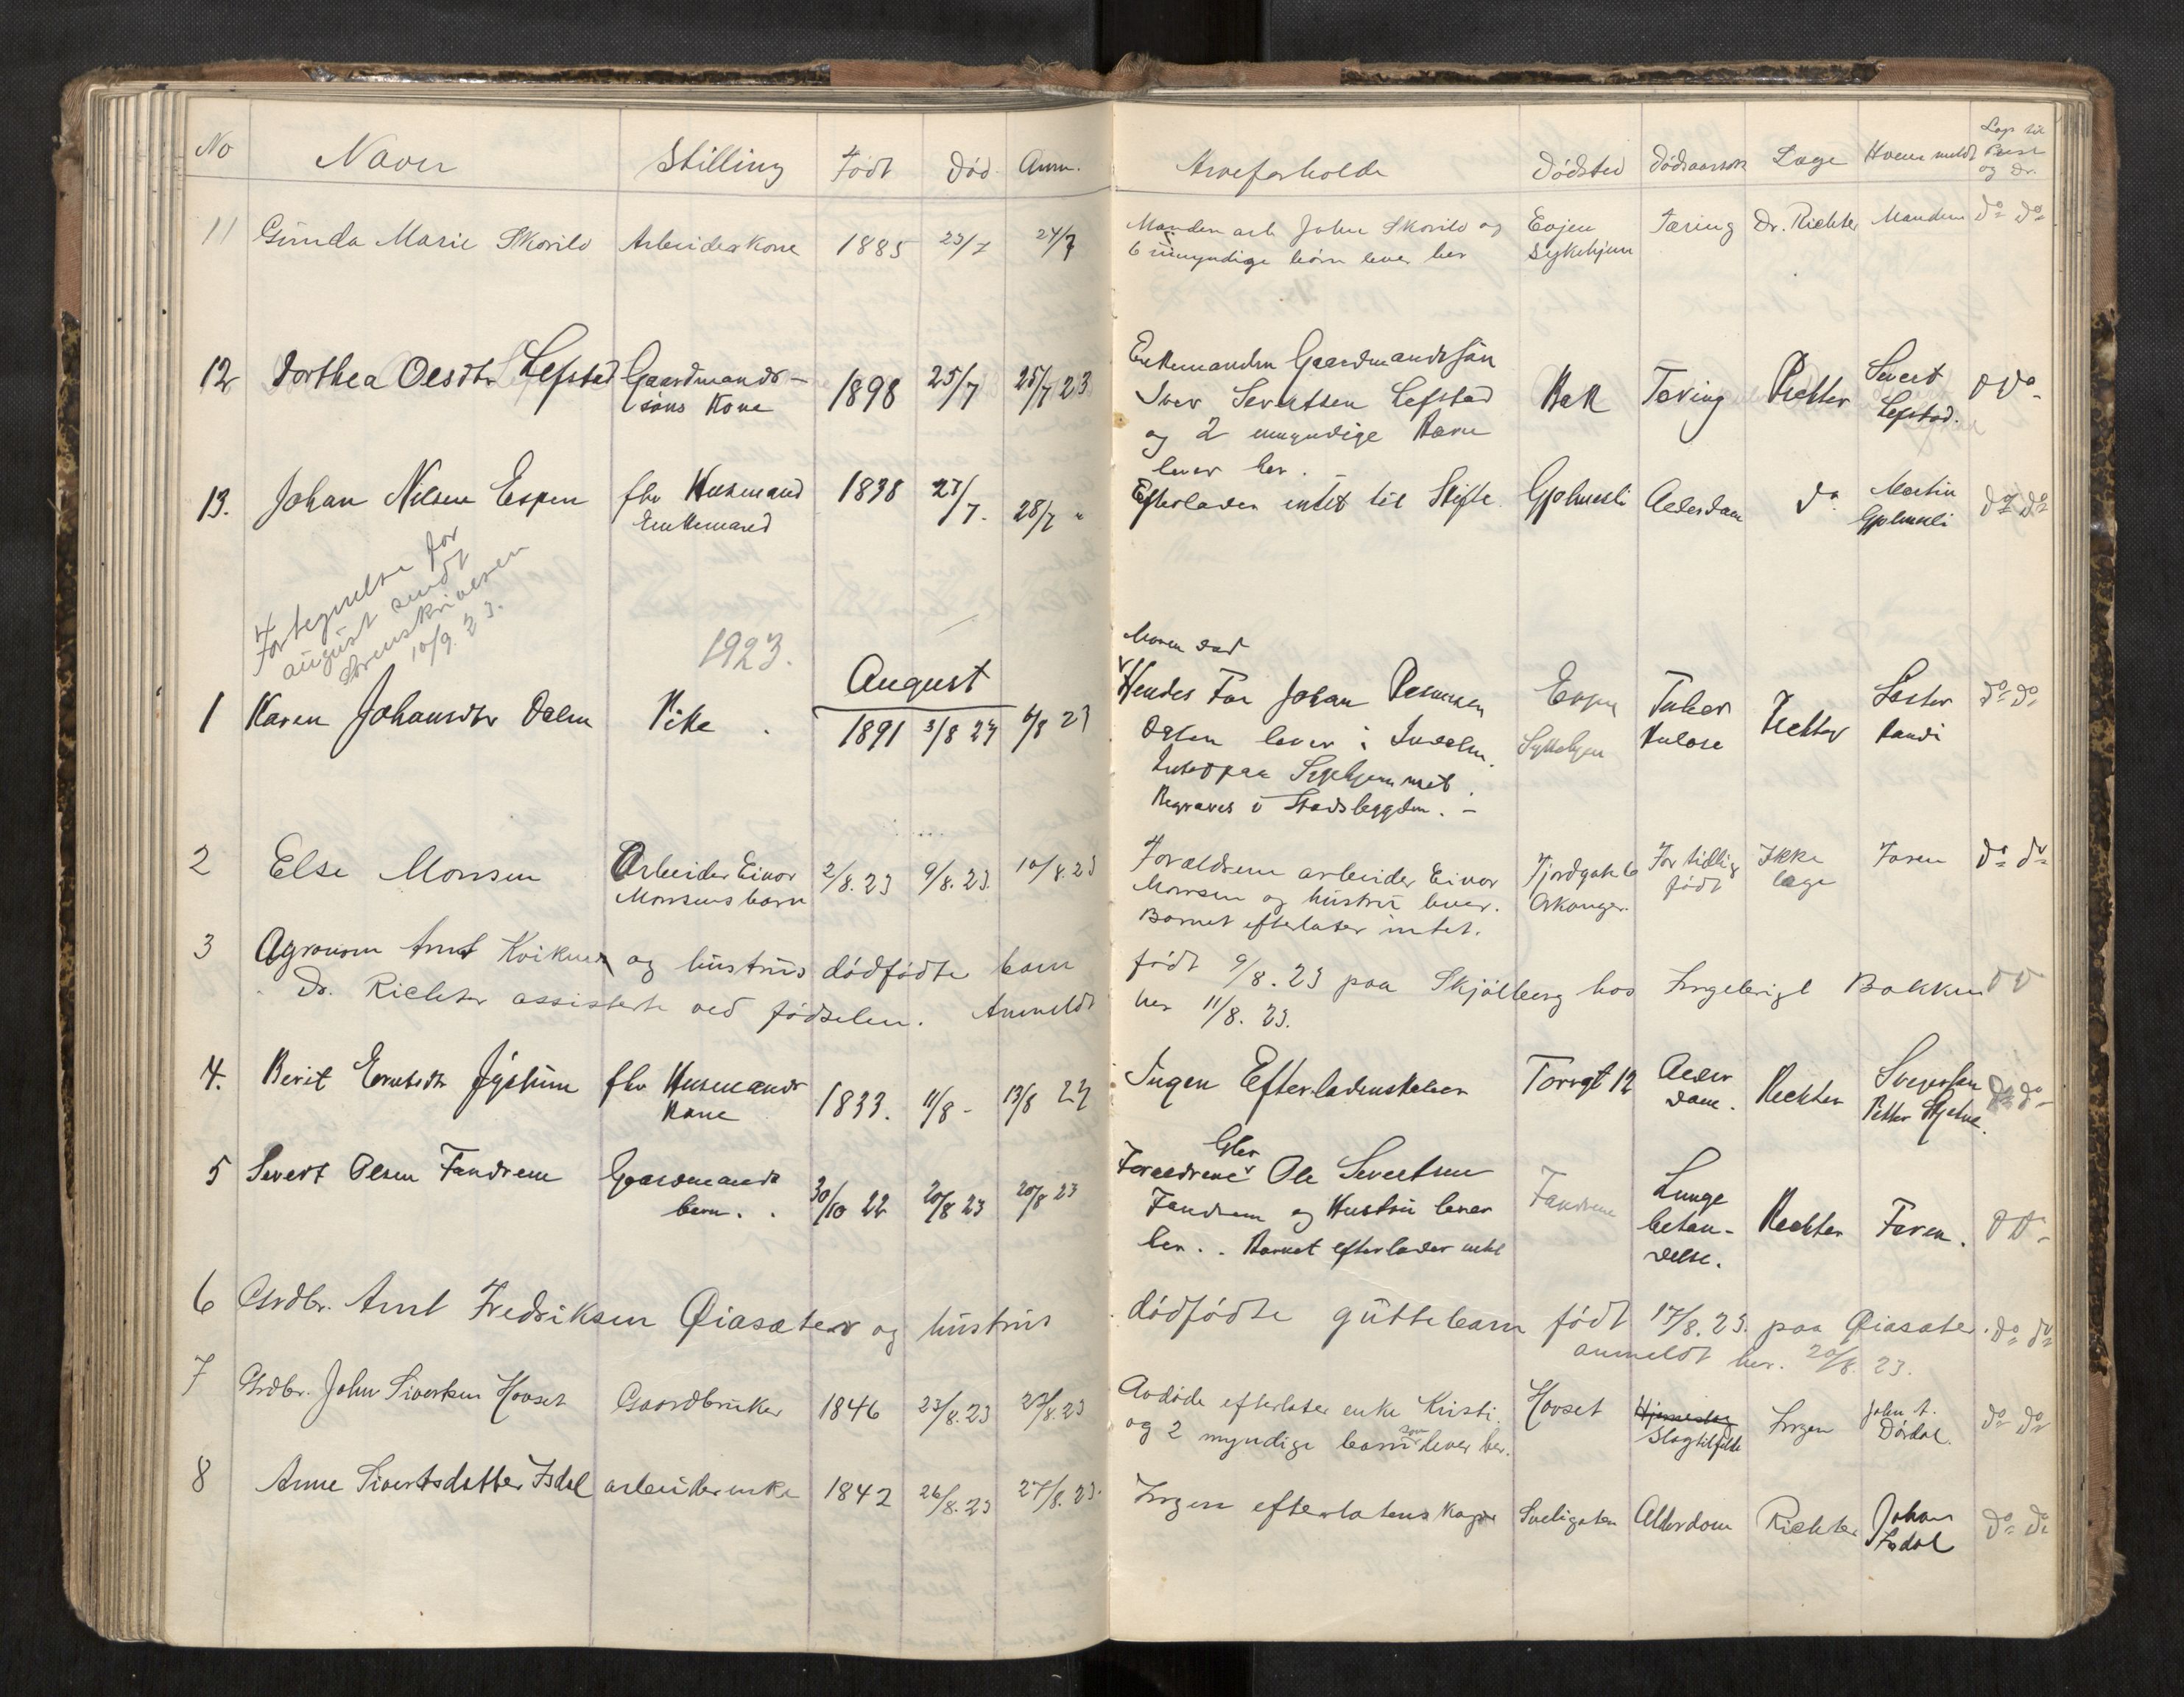 No Navn Stilling Født Død Anm. Arveforholde Dødsted Dødsaarsak Læge Hvem meldt Lap til
og Dr.
11 Gunda Marie Skorild Arbeiderkone 1885 23/7 24/7 Manden arb John Skorild og Evjen Tæring Dr. Richter Manden do do
6 umyndige børn lever her Sykehjem
12 Dorthea Olsdtr Lefstad Gaardmands- 1898 25/7 25/7 23 Enkemanden Gaardmandssøn Bak Tæring Richter Sivert do
søns Kone Iver Sivertsen Lefstad Lefstad.
og 2 umyndige Børn
lever her. -
13. Johan Nilsen Espen fhv Husmand 1838 27/7. 28/7 " Efterlader intet til Skifte Gjølmesli Alderdom do Martin do do
Enkemand Gjølmesli
Fortegnelse for
august sendt
sorenskriveren
10/9. 23.
1923.
August
Moren død
1 Karen Johansdtr Dalen Pike. 1891 3/8 23 6/8 23 Hendes Far Johan Rasmussen Evjen Tuber Richter Søster do do
Dalen lever i Sykehjem kulose Randi
Begraves i Stadsbygden. -
2 Else Monsen Arbeider Einar 2/8. 23 9/8. 23. 10/8. 23 Forældrene arbeider Einar Fjordgate 6 For tidlig Ikke Faren do do
Monsens barn Monsen og hustru lever. Orkanger. født læge
Barnet efterlater intet.
3 Agronom Arnt Kvikne og hustrus dødfødte barn født 9/8. 23 paa Skjølberg hos Ingebrigt Bakken do
Dr. Richter assisterte ved fødselen. Anmeldt her 11/8. 23.
4. Berit Erntsdtr Jystum fhv Husmands 1833. 11/8 - 13/8 23 Ingen Efterladenskaber Torvgt 12 Alder Richter Svigersøn do do
Kone dom. Petter
5 Sivert Olsen Fandrem Gaardmands 30/10 22 20/8 23 20/8 23 Forældrene Gbr Ole Sivertsen Fandrem Lunge Richter Faren. do
barn. . Fandrem og Hustru lever betæn-
her. . Barnet efterlader intet delse.
6 Grdbr. Arnt Fredriksen Øiasæter og hustrus dødfødte guttebarn født 17/8. 23. paa Øiasæter. do do
anmeldt her. 20/8. 23.
7 Grdbr. John Sivertsen Hovset Gaardbruker 1846 23/8. 23 27/8. 23 Avdøde efterlater enke Kristi Hovset Hjerneslag Ingen John A. do do
og 2 myndige barn som lever her. Slagtilfelde Dørdal.
8 Anne Sivertsdatter Isdal arbeiderenke 1842 26/8. 23 27/8. 23. Ingen efterlatenskaper Sveligaten Alderdom Richter Johan do do
Isdal